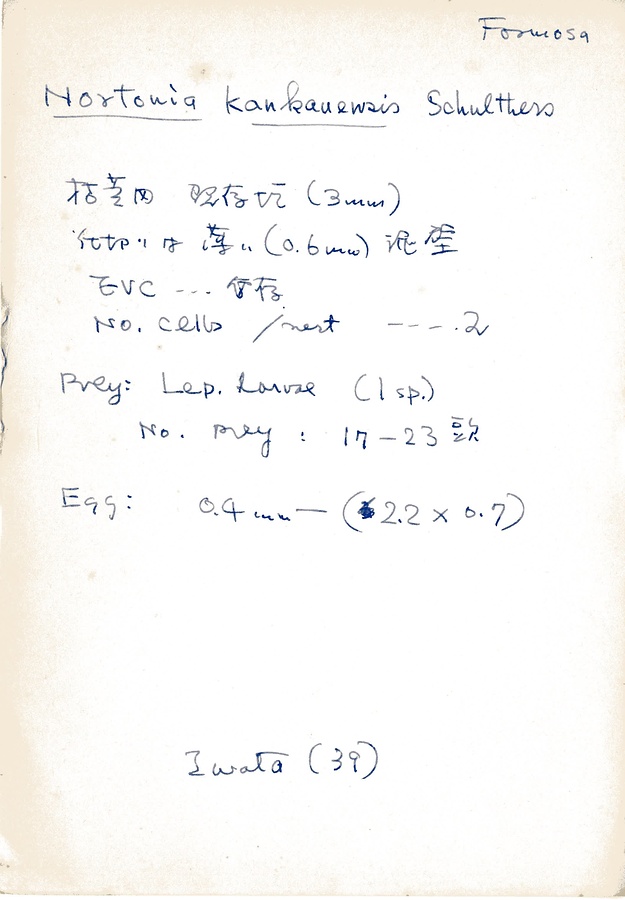 Formosa
Nortonia kankauensis Schulthess
枯茎内 既存坑 (3mm)
仕切りは薄い(0.6mm) 泥壁
EVC ---
No. cells /nest ----.2
Prey: Lep. Larvae (1 sp.)
No. prey : 17-23 頭
Egg: 0.4 mm — (2.2 × 0.7)
Iwata (39)